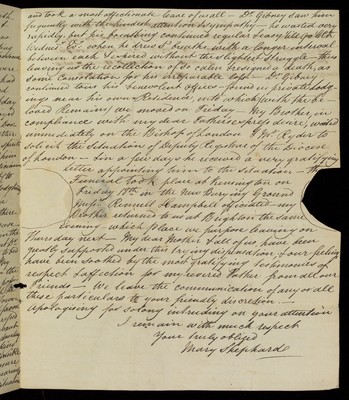 and took a most affectionate leave of us all — Dr Gibney saw him
frequently with the kindest attention & sympathy — he wasted very
rapidly, but his breathing continued regular & easy till 1/4 past 4th
when he drew 5 breaths with a longer interval
between each & expired without the slightest Struggle — thus
leaving us the recollection of a calm & serene death, as
some Consolation for his irreparable loss — Dr Gibney
continued to us his benevolent offices — found us private Lodg-
ings near his own Residence, into which, with the be-
loved Remains we moved on Friday — My Brother, in
compliance with my dear Father's express desire, waited
immediately on the Bishop of London & Mr Ryder to
solicit the Situation of Deputy Registrar of the Diocese
of London — & in a few days he received a very gratifying
letter appointing him to the Situation — the
Funeral took place at Kensington on
Friday 7th in the New Burying Ground
Messrs Rennell & Campbell officiated — my
Brother returned to us at Brighton the same
evening — which place we purpose leaving on
Thursday next — My dear Mother & all of us have been
greatly supported under this trying dispensation & our feelings
have been soothed by the most gratifying testimonies of
respect & affection for my revered Father from all our
Friends — We leave the communication of any or all
these particulars to your friendly discretion —
Apologizing for so long intruding on your attention
I remain with much respect
Your truly obliged
Mary Shephard